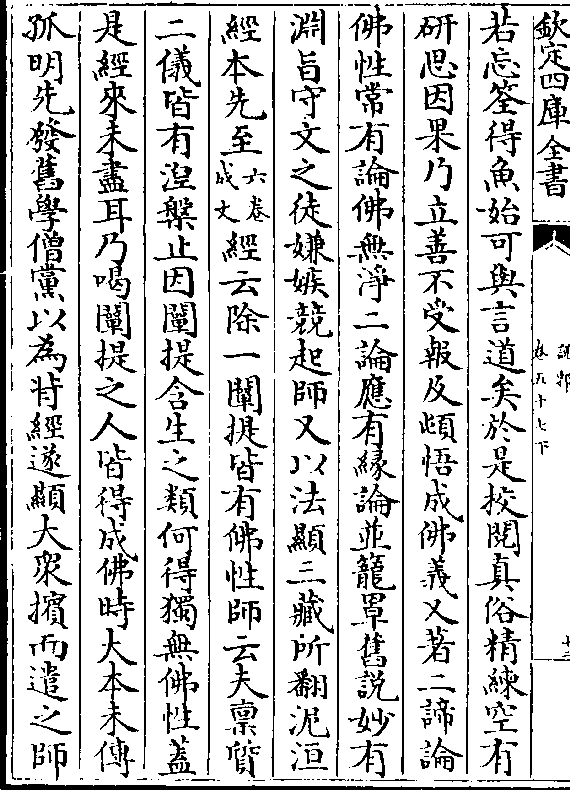 欽定四庫全書
說郛
卷五十七下
十三
若忘筌得魚始可與言道矣於是挍閱真俗精練空有
研思因果乃立善不受報及頓悟成佛義又著二諦論
佛性常有論佛無淨二論應有緣論並籠罩舊說妙有
淵旨守文之徒嫌嫉競起師又以法顯三藏所翻泥洹
經本先至六卷成文經云除一闡提皆有佛性師云夫禀質
二儀皆有涅槃止因闡提含生之類何得獨無佛性蓋
是經來未盡耳乃唱闡提之人皆得成佛時大本未傳
孤明先發舊學僧黨以為背經遂顯大衆擯而遣之師